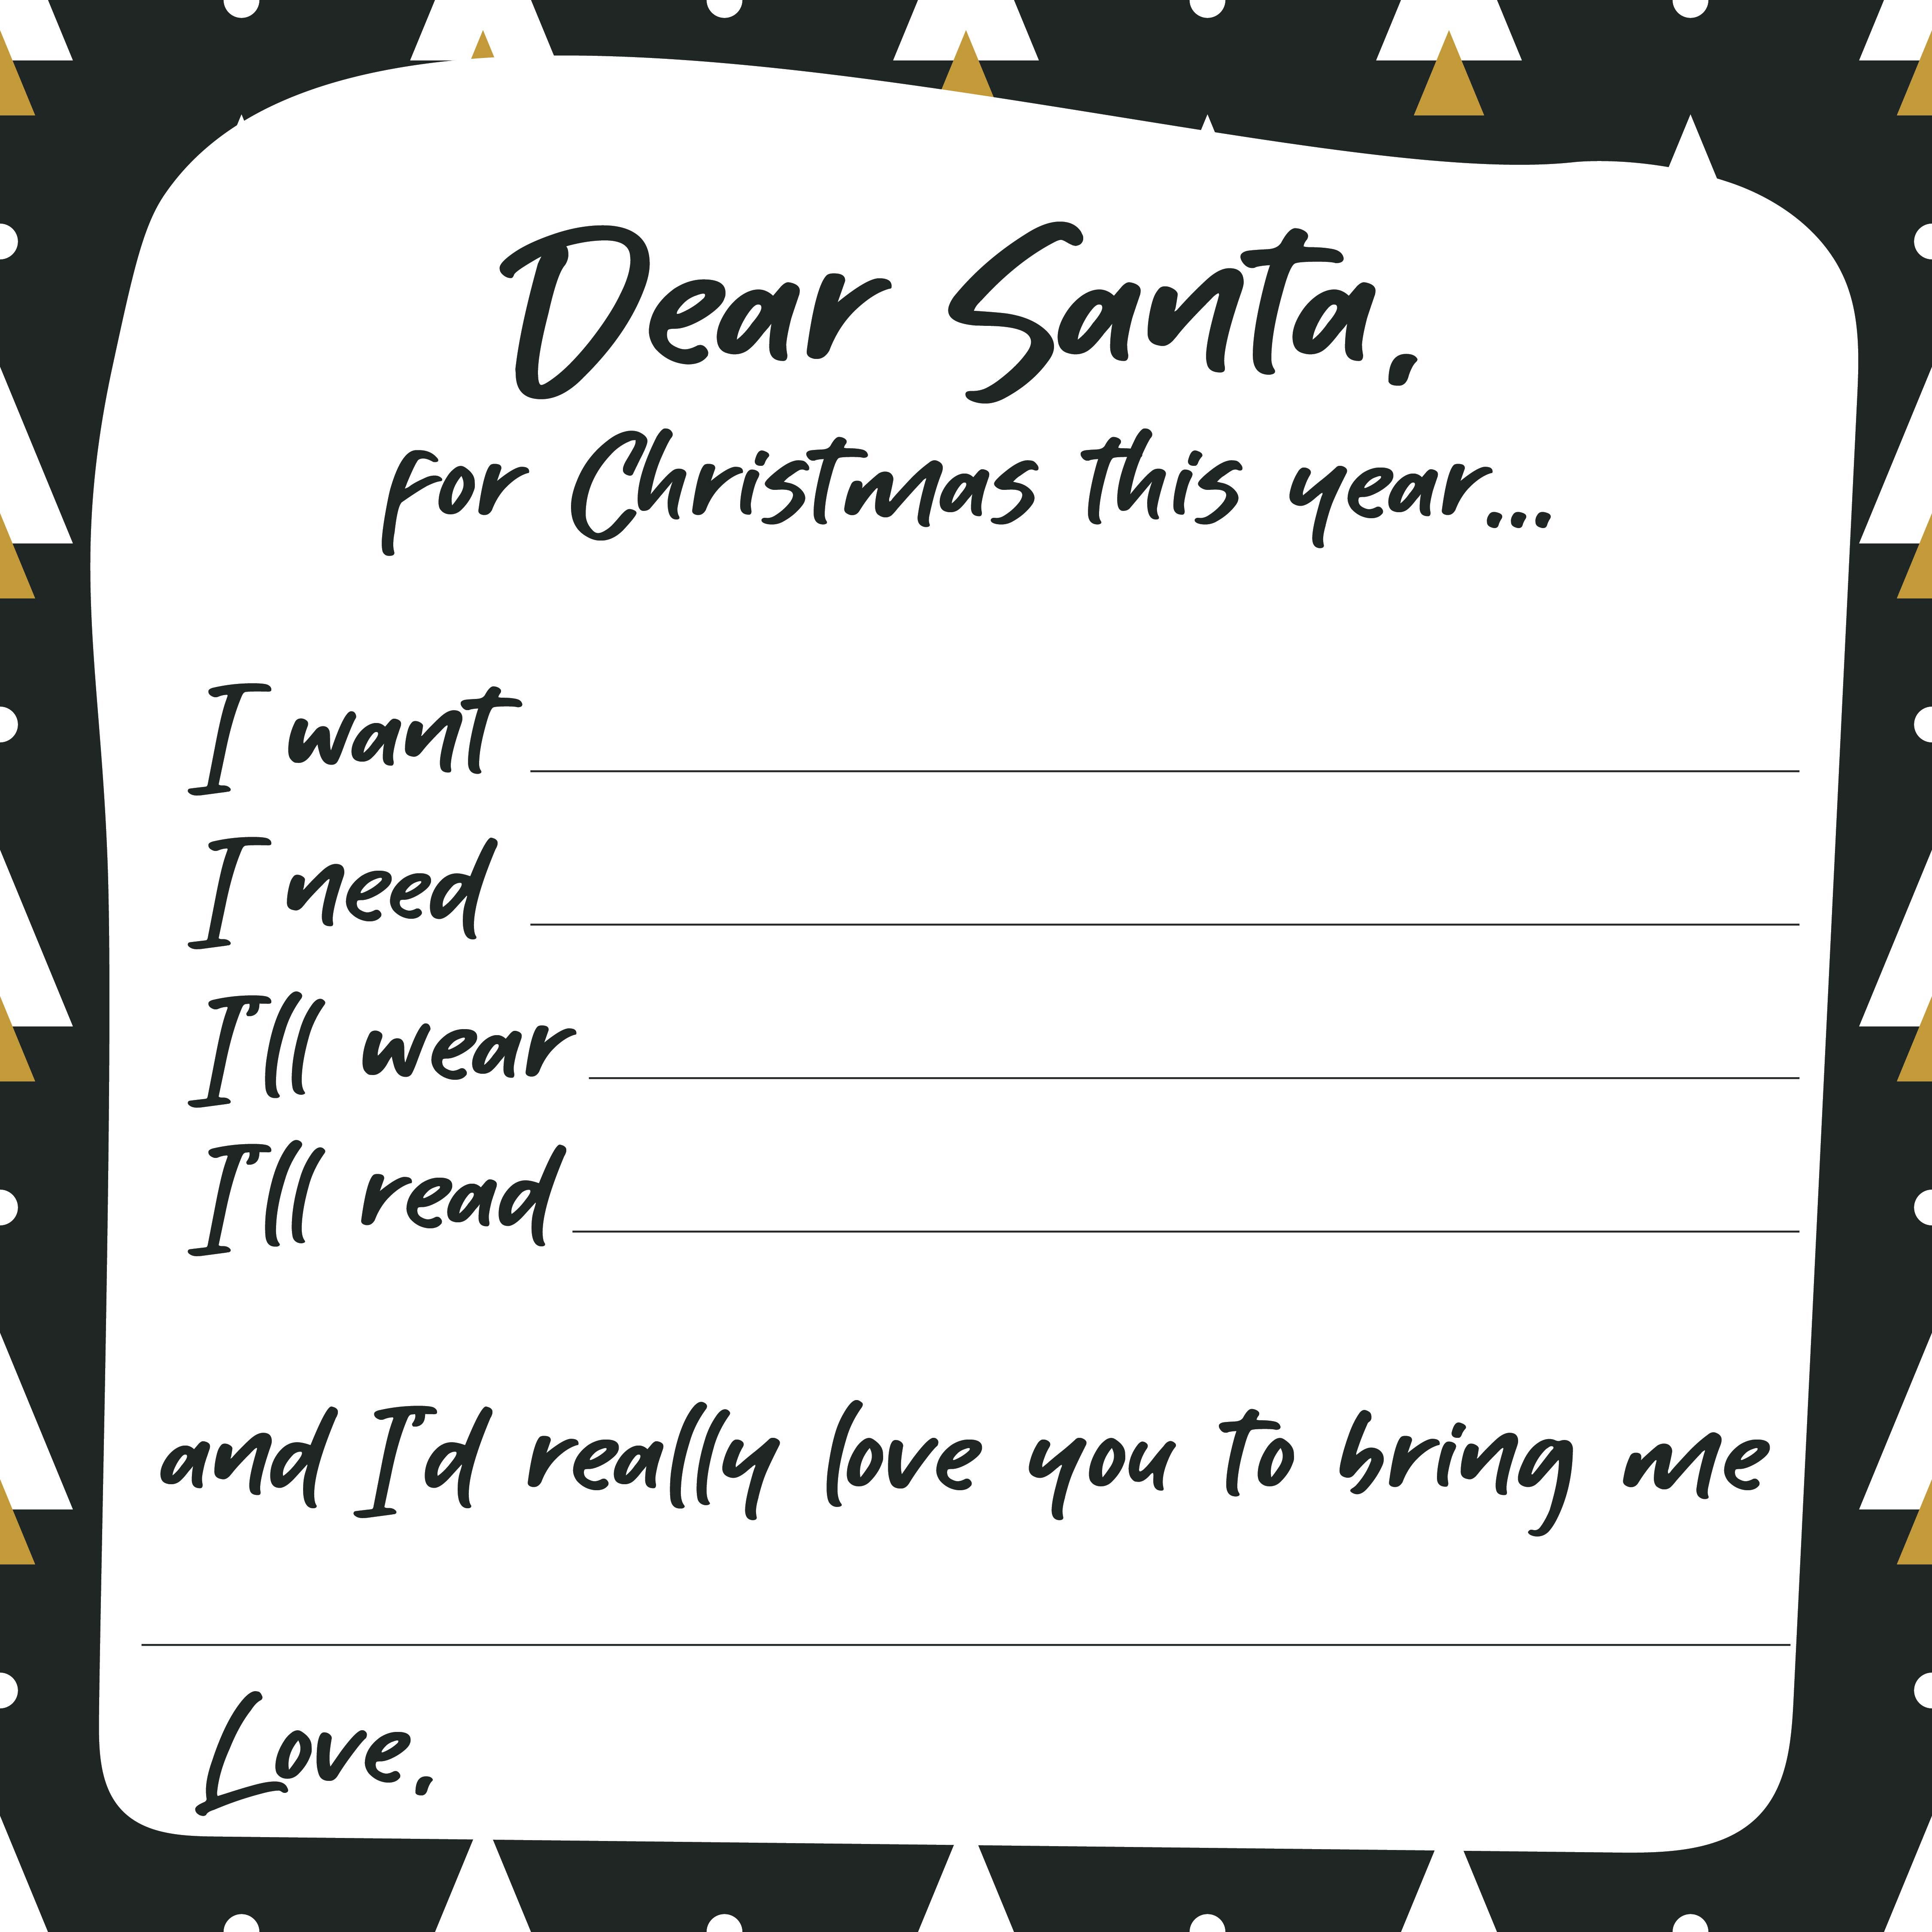 Dear Santa,
for Christmas this year...
I want
I need
I'll wear
I'll read
and I'd really love you to bring me
Love,